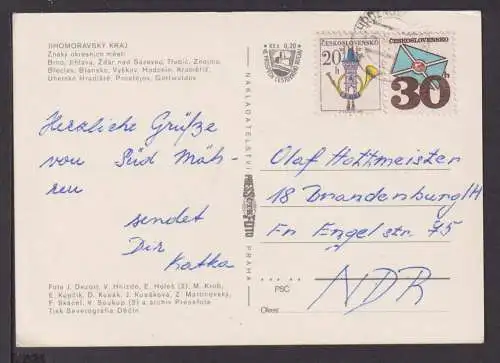 JIHOMORAVSKÝ KRAJ
Znaky okresních měst:
Brno, Jihlava, Žďár nad Sázavou, Třebíč, Znojmo,
Břeclav, Blansko, Vyškov, Hodonín, Kroměříž,
Uherské Hradiště, Prostějov, Gottwaldov
Herzliche Grüße
von Süd Mäh-
ren
sendet
Dir
Katka
Foto J. Dezort, V. Hnízdo, E. Holeš (2), M. Krob,
D. Kusák, J. Kusáková, Z.
F. Skácel, V. Soukup (3) a archiv Pressfota
Tisk Severografia Děčín
NAKLADATELSTVÍ
PRESSFOTO
PRAHA
Kčs 0,20
ČESKOSLOVENSKO
20 h
ČESKOSLOVENSKO
30h
Olaf Hottmeister
18 Brandenburg/H
Fr Engel str 75
NDR
PSČ
Okres